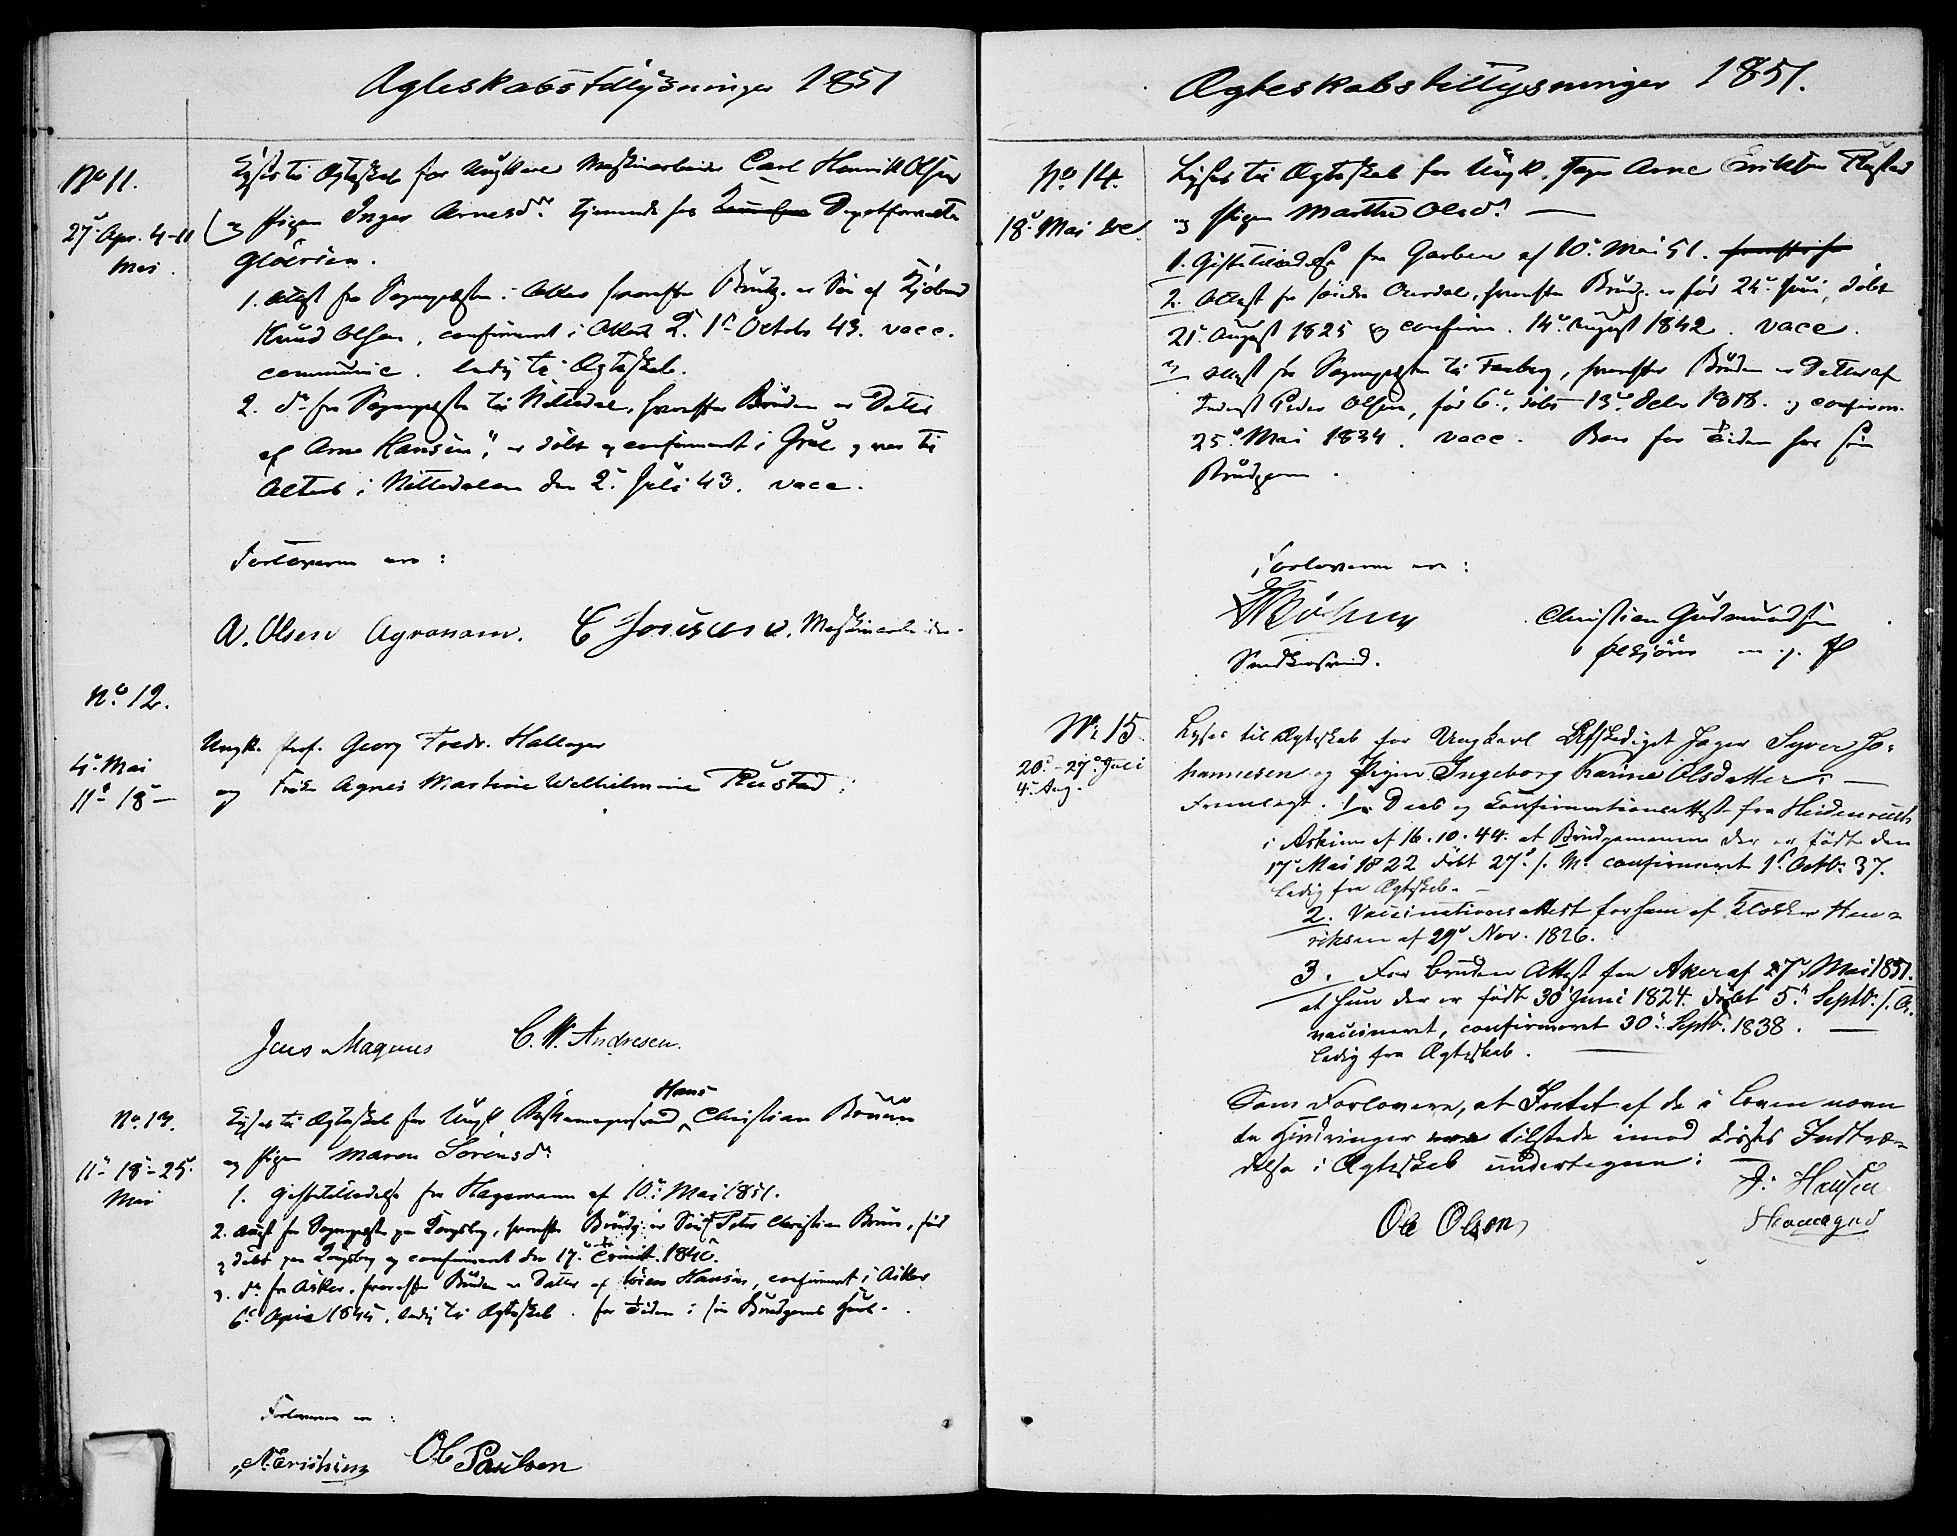 Ægteskabstillysninger 1851
No 11.
27de Apr. 4-11
Mai.
Lyses til Ægteskab for Ungkarl Maskinarbeider Carl Henrik Olsen
og Pigen Inger Arnesdr tjenende hos Depotforvalter
Gløersen.
1. Attest fra Sognepræsten i Aker hvorefter Brudg. er Søn af
Knud Olsen, confirmeret i Aker 1st Octob 43. vacc.
communic. ledig til Ægteskab.
2. do fra Sognepræsten til Nittedal, hvorefter Bruden er Datter
af Arne Hansen, er døbt og confirmeret i Grue og var til
Alters i Nittedalen den 2. Juli 43. vacc.
Forloverne ere:
A. Olsen Agronom. Maskinarbeider.
No. 12.
4de Mai
11te 18de
Ungk. Prof. Georg Fredr. Hallager
og Frøk Agnes Martine Wilhelmine Rustad.
Jens Magnus C. W. Andresen.
No. 13.
11-18-25.
Mai
Hans
Lyses til Ægteskab for Ungk. Christian Bruun
og Pigen Maren Sørensdr
1. Giftetilladelse fra Hagemann af 10. Mai 1851.
2. Attest fra Sognepræsten paa Kongsberg, hvorefter Brudg. er Søn af Peter Christian Bruun, født
og døbt paa Kongsberg og confirmeret den 17. Trinit. 1840.
3. do fra Asker, hvorefter Bruden er Datter af Søren Hansen, confirmeret i Asker
6. April 1845, ledig til Ægteskab. for Tiden i sin Brudgoms Huus.
Forloverne ere:
Ole Paulsen
Ægteskabstillysninger 1851.
No. 14.
18de Mai
Lyses til Ægteskab for Ungk. Jæger Arne Eriksen
og Pigen Marthe Olsdr.
1. Giftetilladelse fra Garben af 10. Mai 51.
2. Attest fra søndre Aurdal, hvorefter Brudg. er født 24. Juni, døbt
21. August 1825 og confirm. 14. August 1842. vacc.
3. Attest fra Sognepræsten til Faaberg, hvorefter Bruden er Datter af
Inderst Peder Olsen, født 6., døbt 13. Decbr 1818. og confirm.
25. Mai 1834. vacc. Boer for Tiden hos sin
Brudgom.
Forloverne ere:
Christian Gudmundsen
m. p. P
No 15
20de-27de Juli
4. Aug.
Lyses til Ægteskab for Ungkarl Afskediget Jæger Syver Jo-
hannesen og Pigen Ingeborg Karine Olsdatter.
Fremlagt. 1. Daab og Confirmationsattest fra Heidenreich
i Askim af 16.10.44. at Brudgommen der er født den
17de Mai 1822 døbt 27de s. M. confirmeret 1st Octb. 37.
ledig fra Ægteskab.
2. Vaccinationsattest for ham af Klokker Hen-
riksen af 29de Nov. 1826.
3. For Bruden Attest fra Aker af 27de Mai 1851.
at hun der er født 30 Juni 1824. døbt 5te Septb. s. A.
vaccineret, confirmeret 30te Septb. 1838.
ledig fra Ægteskab.
Som Forlovere, at Intet af de i Loven nævn
te Hindringer ere tilstede imod disses Indtræ-
delse i Ægteskab undertegnes:
Ole Olsen J. Hansen